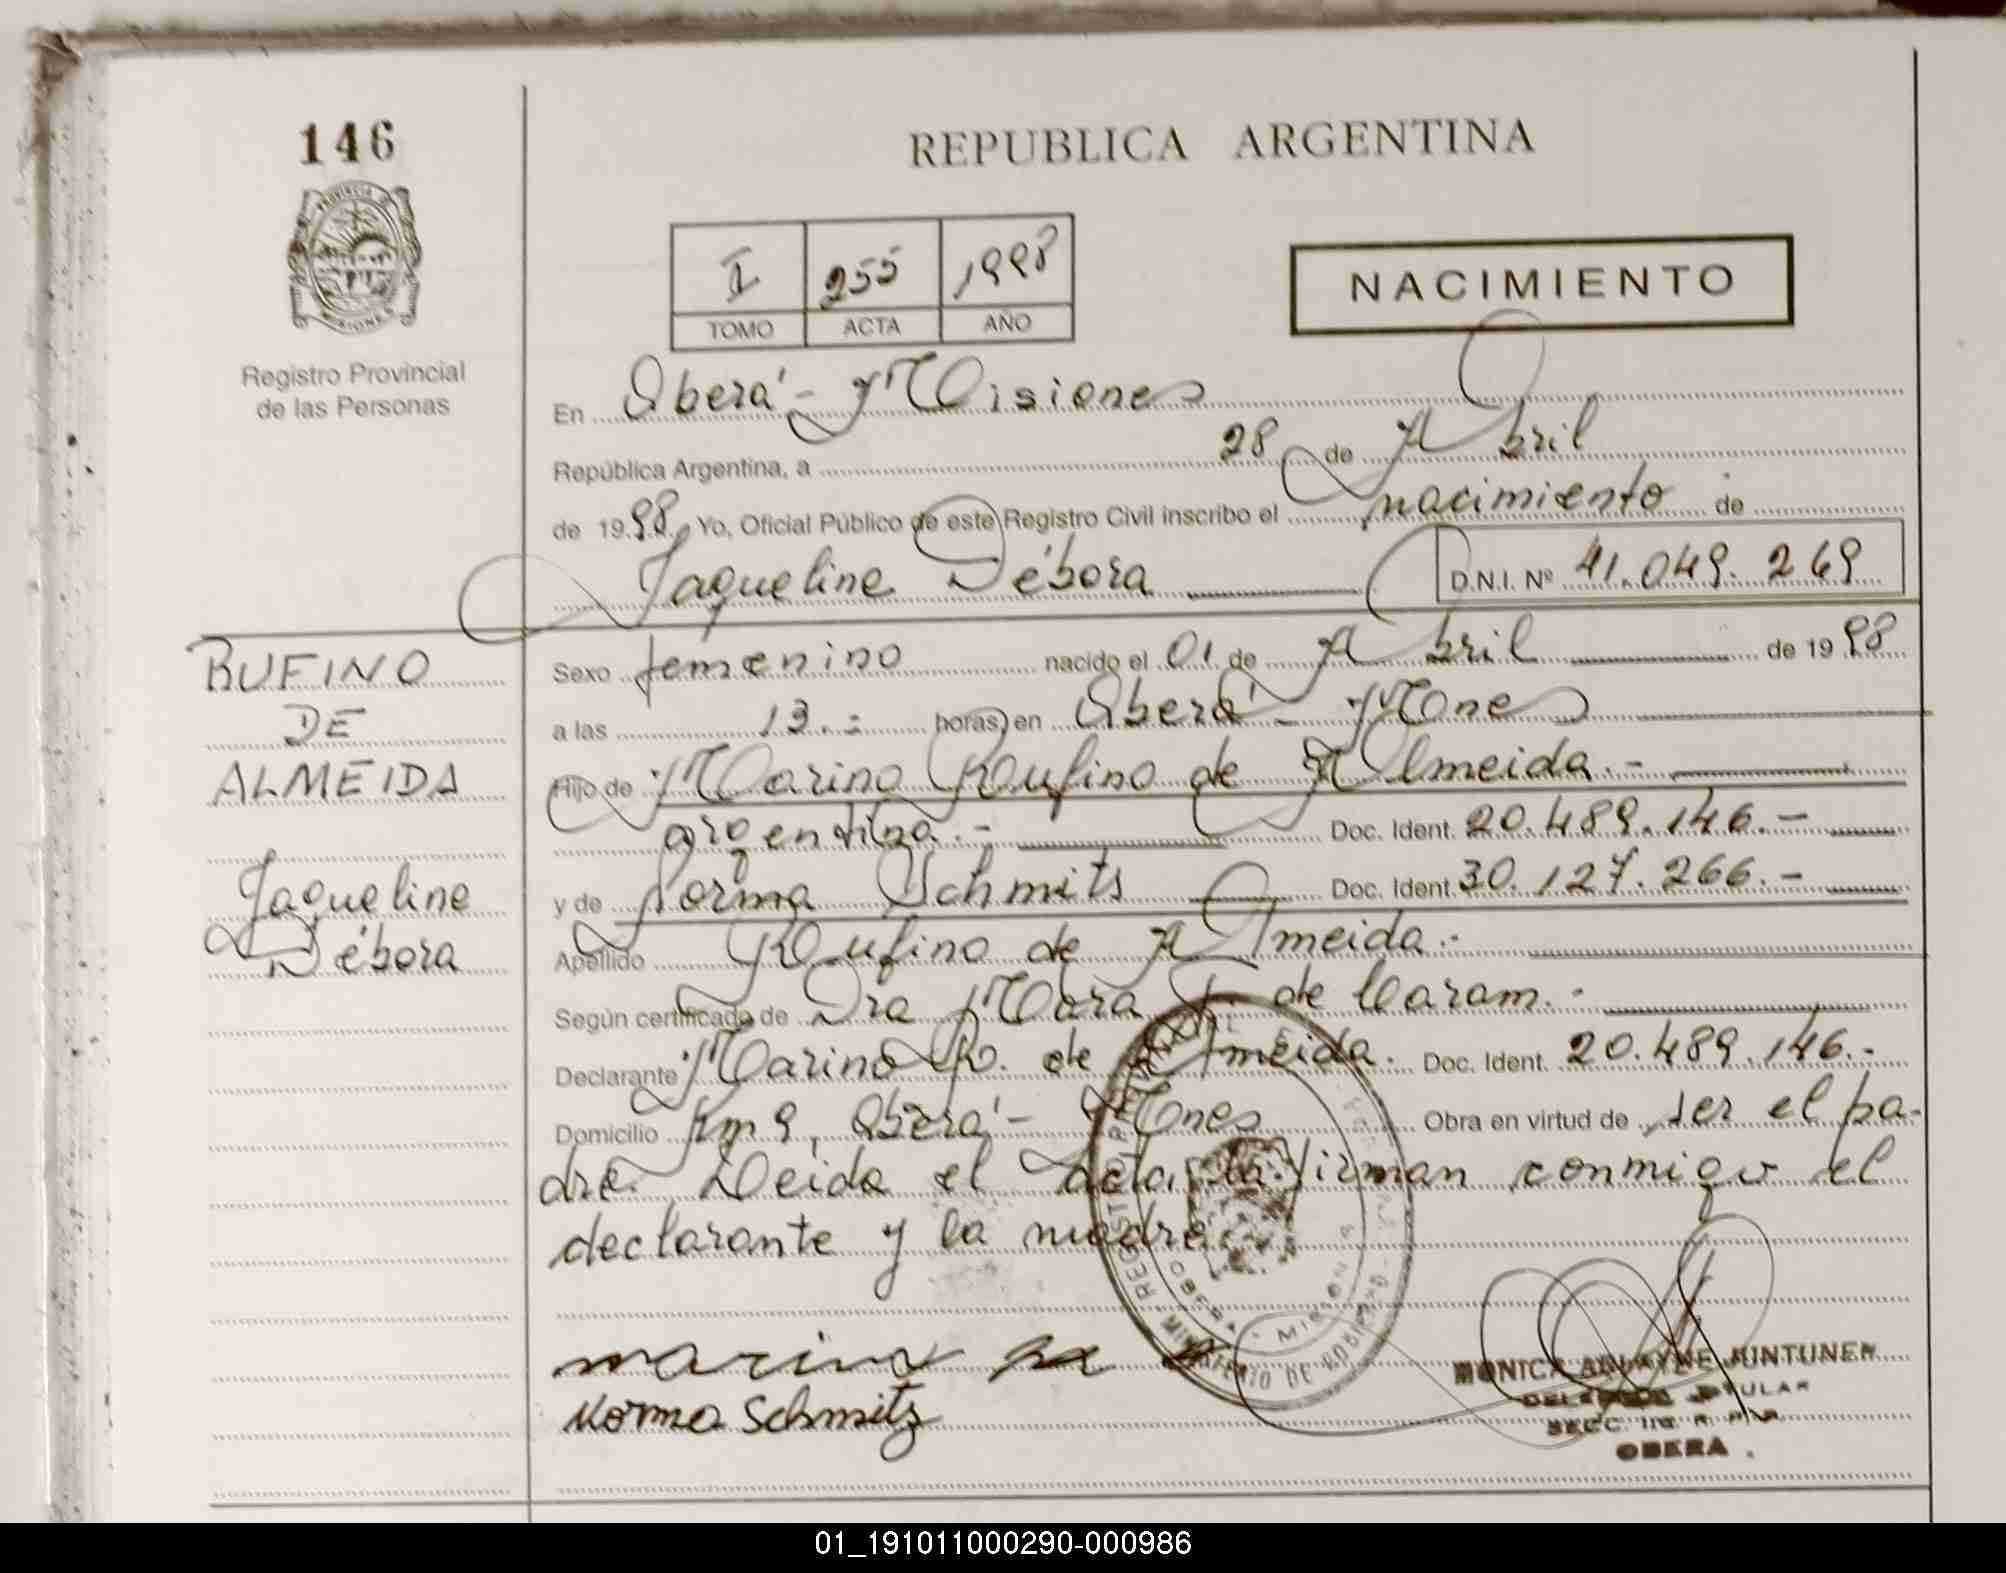 146
REPUBLICA ARGENTINA
PROVINCIA
MISIONES
Registro Provincial
de las Personas
I 255 1998
TOMO ACTA AÑO
NACIMIENTO
En Oberá - Misiones
República Argentina, a 28 de Abril
de 1998 Yo, Oficial Público de este Registro Civil inscribo el nacimiento de
Jaqueline Débora D.N.I. Nº 41.049.269
RUFINO
DE
ALMEIDA
Jaqueline
Débora
Sexo femenino nacido el 01 de Abril de 1998
a las 13.- horas, en Oberá - Mnes
Hijo de Marino Rufino de Almeida.-
argentina.- Doc. Ident. 20.489.146.-
y de Norma Schmits Doc. Ident. 30.127.266.-
Apellido Rufino de Almeida.-
Según certificado de Dra Mara de Caram.-
Declarante Marino R. de Almeida. Doc. Ident. 20.489.146.-
Domicilio Km 9, Oberá - Mnes Obra en virtud de ser el pa-
dre. Leida el acta, la firman conmigo el
declarante y la madre.
marino
Norma Schmitz
MINISTERIO DE GOBIERNO
OBERA - MISIONES
MONICA JUNTUNEN
DELEGADA TITULAR
SECC. R. P. P.
OBERA.
01_191011000290-000986